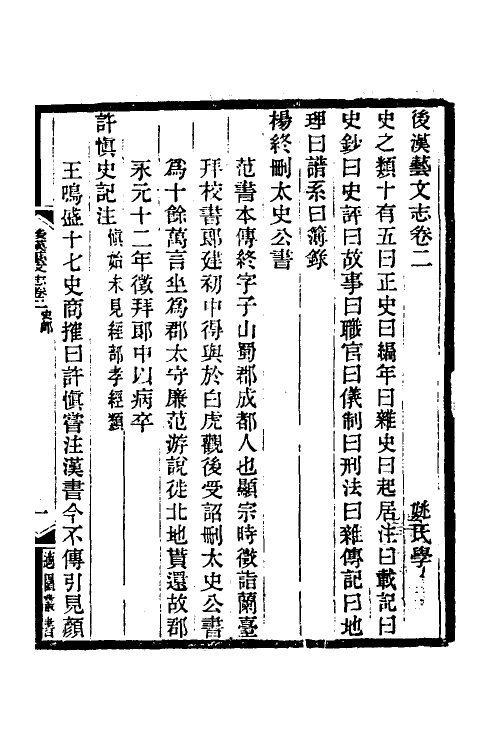 後漢藝文志卷二　姚氏學
史之類十有五曰正史曰編年曰雜史曰起居注曰載記曰
史鈔曰史評曰故事曰職官曰儀制曰刑法曰雜傳記曰地
理曰譜系曰簿錄
楊終刪太史公書
范書本傳終字子山蜀郡成都人也顯宗時徵詣蘭臺
拜校書郎建初中得與於白虎觀後受詔刪太史公書
爲十餘萬言坐爲郡太守廉范游說徙北地貰還故郡
永元十二年徵拜郎中以病卒
許慎史記注　慎始末見經部孝經類
王鳴盛十七史商搉曰許慎嘗注漢書今不傳引見顏
後漢藝文志卷二　史部
一
適園叢書